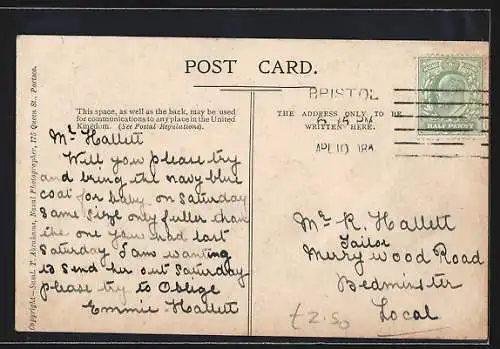 POST CARD.
This space, as well as the back, may be used
for communications to any place in the United
Kingdom. (See Postal Regulations).
THE ADDRESS ONLY TO BE
WRITTEN HERE.
BRISTOL
HALF PENNY
Mr Hallett
Will you please try
and bring the navy blue
coat for baby on Saturday
Same size only fuller than
the one you had last
Saturday I am wanting
to send her out Saturday
please try to Oblige
Emmie Hallett
Mr R. Hallett
Tailor
Merrywood Road
Bedminster
Local
£2.50
Copyright—Saml. T. Abrahams, Naval Photographer, 175 Queen St., Portsea.